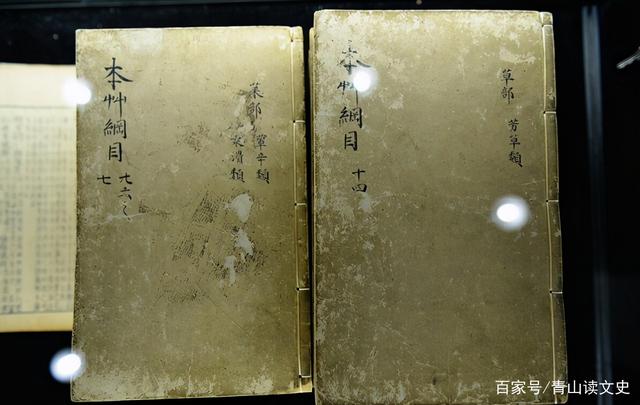 菜部
葷辛類
柔滑類
本艸綱目
六之
七
草部
芳草類
本艸綱目
十四
百家号/青山读文史